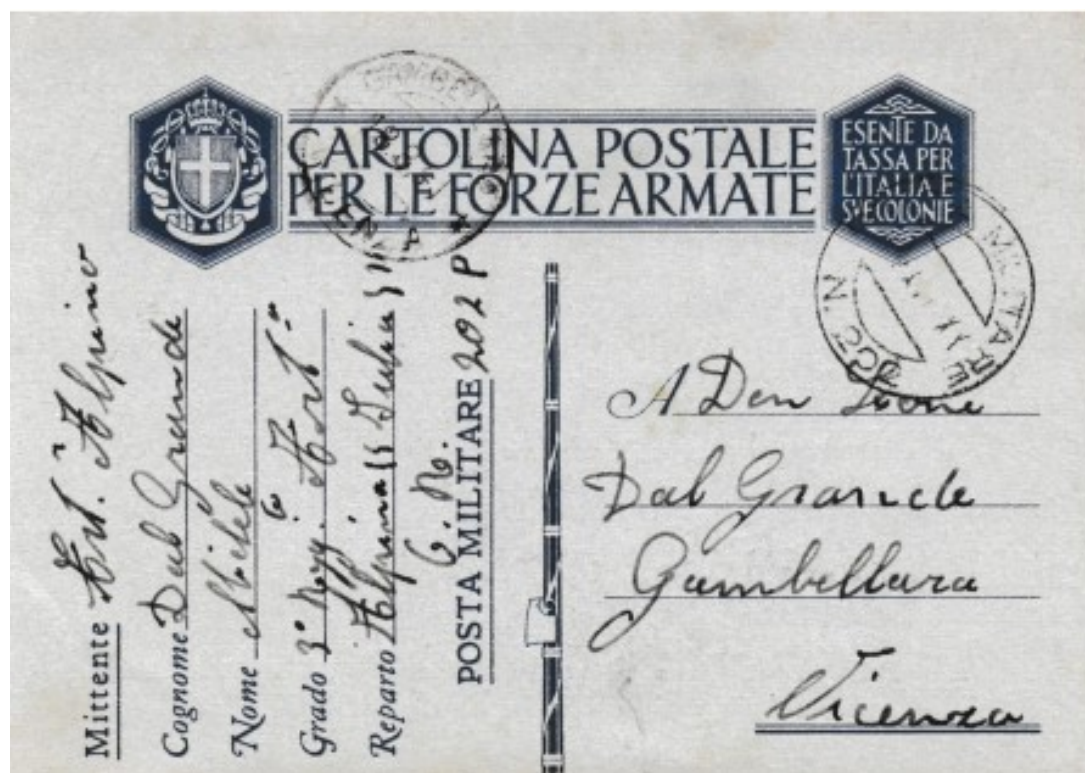 CARTOLINA POSTALE
PER LE FORZE ARMATE
ESENTE DA
TASSA PER
L'ITALIA E
SVE COLONIE
MILITARE
Mittente Art. Alpino
Cognome Dal Grande
Nome Michele
Grado 3° Art.
Reparto Alpina
POSTA MILITARE 202 P
A Don
Dal Grande
Gambellara
Vicenza